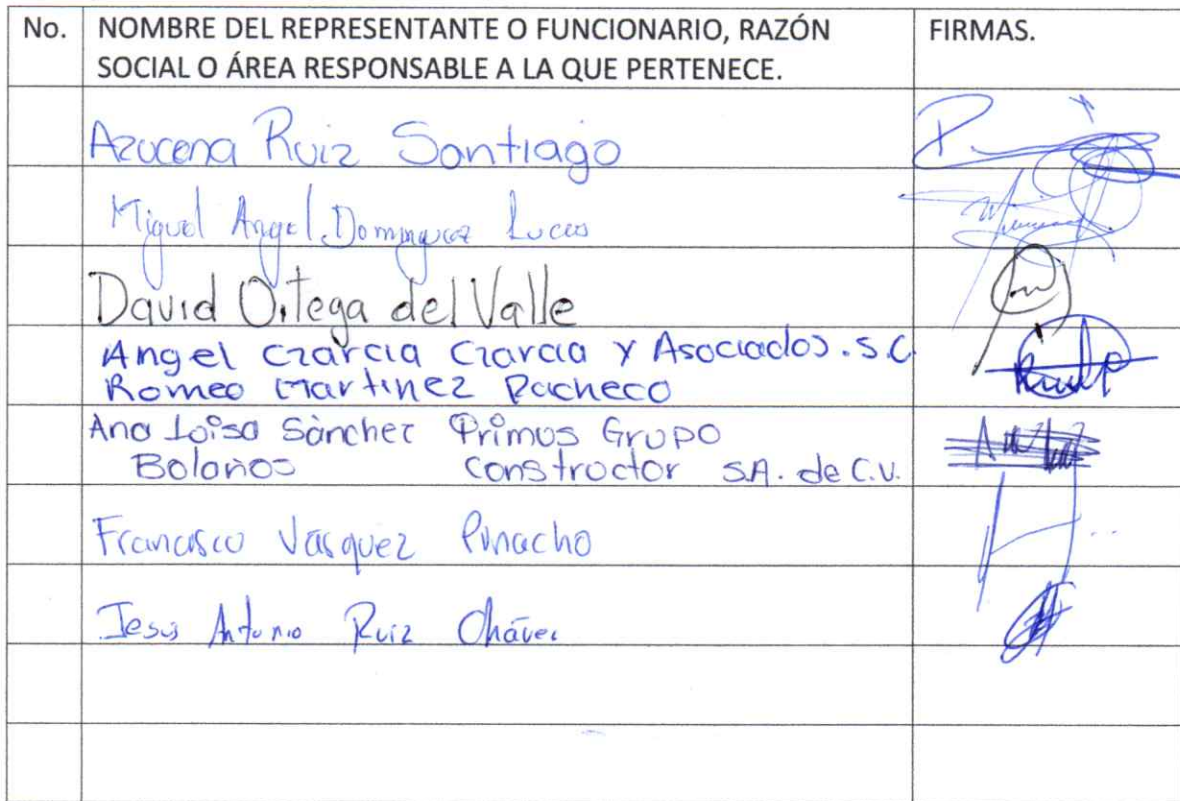 No. NOMBRE DEL REPRESENTANTE O FUNCIONARIO, RAZÓN FIRMAS.
SOCIAL O ÁREA RESPONSABLE A LA QUE PERTENECE.
Azucena Ruiz Santiago
Miguel Angel Dominguez Lucas
David Ortega del Valle
Angel Garcia Garcia y Asociados. S.C
Romeo Martinez Pacheco
Ana Loisa Sánchez Primus Grupo
Bolaños constructor S.A. de C.V.
Francisco Vásquez Pinacho
Jesús Antonio Ruiz Chávez